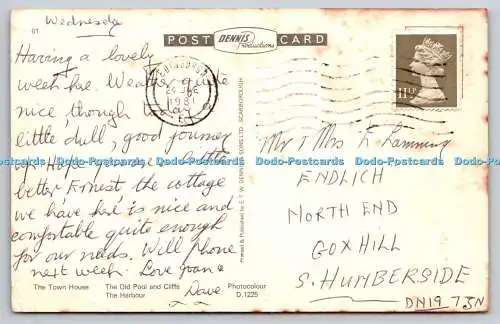 01
Wednesday
POST DENNIS Productions CARD
Having a lovely
week here. Weather quite
nice though a
little dull, good journey
up. Hope you are a little
better Ernest the cottage
we have here is nice and
comfortable quite enough
for our needs. Will phone
next week. Love Joan &
Dave
EDINBURGH
1981
11½P
Mr & Mrs E Lamming
ENDLICH
NORTH END
GOXHILL
S. HUMBERSIDE
DN19 7JN
Printed & Published by E.T.W. DENNIS & SONS LTD. SCARBOROUGH
The Town House The Old Pool and Cliffs
The Harbour
Photocolour
D.1225
Dodo-Postcards Dodo-Postcards Dodo-Postcards Dodo-Postcards Dodo-Postcards Dodo-Postcards